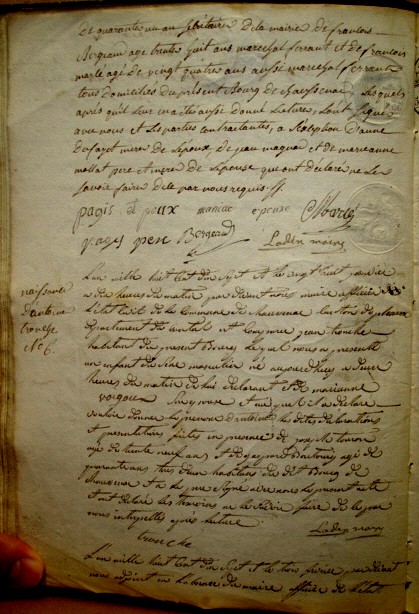 de quarante un an secrétaire de la mairie de francois
Bergeaud age trente huit ans marechal ferrant et de francois
marlé agé de vingt quatre ans aussi marechal ferrant
tous domiciliés du présent Bourg de chaussenac, lesquels
après qu'il leur en a été aussi donné lature, l'ont signé
avec nous et les parties contractantes, a l'exception d'anne
defayet mere de l'epoux, de jean magnac et de marianne
mollat pere et mere de l'epouse qui ont déclaré ne le
savoir faire de ce par nous requis
pagis epoux maniac epouse Marlé
pages pere Bergeaud
Ladex maire
naissance
d'antoine
tronche
N° 6.
L'an mille huit cent dix sept et le vingt huit janvier
a dix heures du matin par devant nous maire officier de
l'état civil de la commune de chaussenac canton de pleaux
departement du cantal est comparu jean tronche
habitant du present Bourg lequel nous a presenté
un enfant du sexe masculin né aujourd'hui a deux
heures du matin de lui declarant et de marianne
son epouse et auquel il a declaré
vouloir donner le prenom d'antoine les dites declarations
et presentation faites en presence de
agé de trente neuf ans et de agé de
quarante ans tous deux habitants du dit Bourg de
chaussenac et a le pere signé avec nous le present acte
et ont declaré les temoins ne le savoir faire de ce par
nous interpellés après lecture.
tronche
Ladex maire
L'an mille huit cent dix sept et le trois fevrier par devant
nous adjoint en l'absence du maire officier de l'état